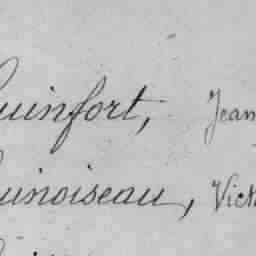 uinfort, Jean
uinoiseau, Vict